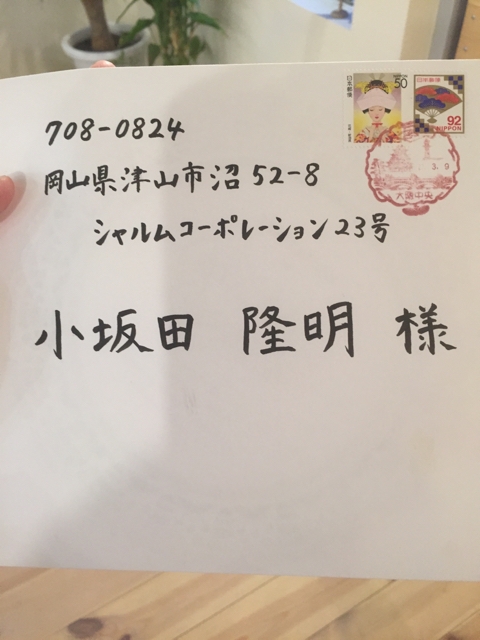 日本郵便
50
日本郵便
92
NIPPON
708-0824
岡山県津山市沼52-8
シャルムコーポレーション23号
3.9
大阪中央
小坂田 隆明 様